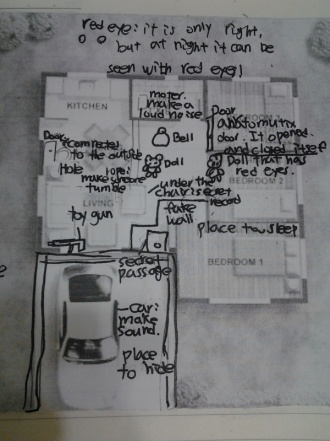 red eye: it is only right,
but at night it can be
seen with red eyes!
KITCHEN
moter.
make a
loud noise
Door
automutix
door. It opened
and closed itself
Bell
Door
connected
to the outside
Hole
rope:
make someone
tumble
Doll
Doll that has
red eyes.
BEDROOM 2
under the
chair is secret
record
LIVING
toy gun
fake
wall
place to sleep
BEDROOM 1
secret
passage
car:
make
sound.
place
to hide